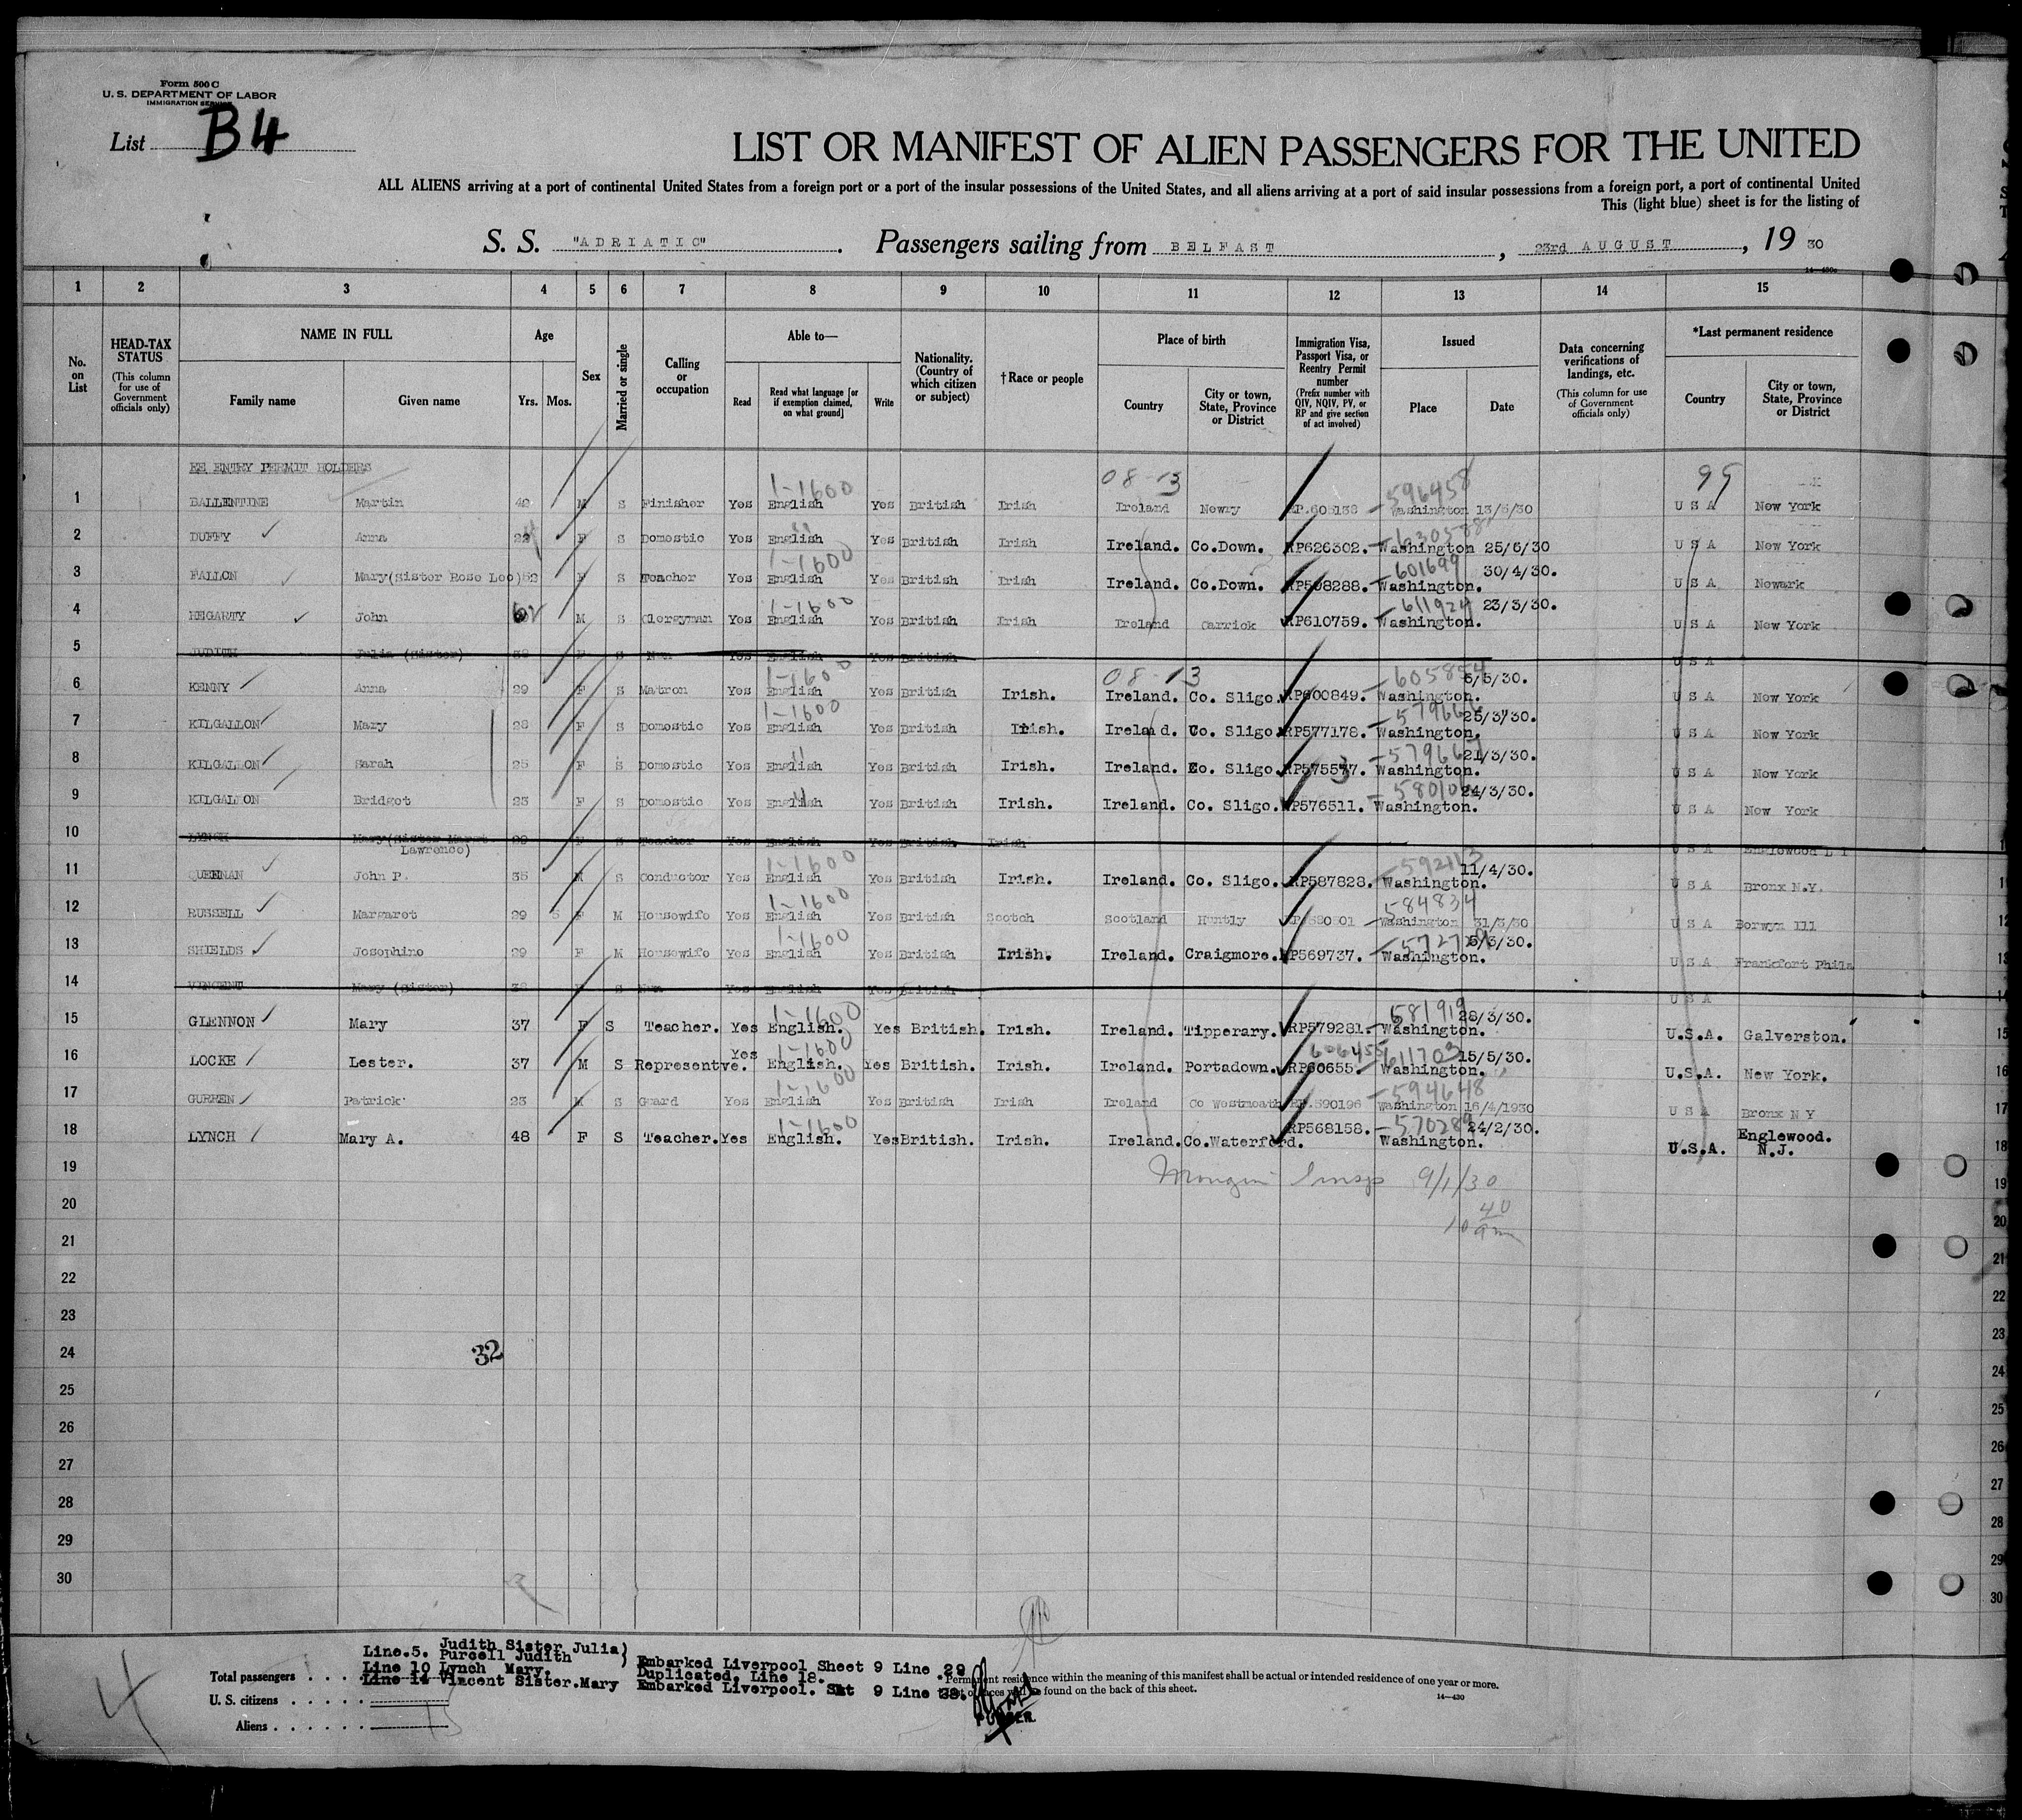 Form 500 C
U. S. DEPARTMENT OF LABOR
IMMIGRATION SERVICE
List B4
LIST OR MANIFEST OF ALIEN PASSENGERS FOR THE UNITED
ALL ALIENS arriving at a port of continental United States from a foreign port or a port of the insular possessions of the United States, and all aliens arriving at a port of said insular possessions from a foreign port, a port of continental United
This (light blue) sheet is for the listing of
S. S. "ADRIATIC". Passengers sailing from BELFAST, 23rd AUGUST, 19 30
14—430c
1 2 3 4 5 6 7 8 9 10 11 12 13 14 15
No. on List
HEAD-TAX STATUS (This column for use of Government officials only)
NAME IN FULL Family name Given name
Age Yrs. Mos.
Sex
Married or single
Calling or occupation
Able to— Read Read what language [or if exemption claimed, on what ground] Write
Nationality. (Country of which citizen or subject)
†Race or people
Place of birth Country City or town, State, Province or District
Immigration Visa, Passport Visa, or Reentry Permit number (Prefix number with QIV, NQIV, PV, or RP and give section of act involved)
Issued Place Date
Data concerning verifications of landings, etc. (This column for use of Government officials only)
*Last permanent residence Country City or town, State, Province or District
RE ENTRY PERMIT HOLDERS
08-13 99
1-1600 596458
1 BALLENTINE Martin M S Finisher Yes English Yes British Irish Ireland Newry Washington 13/5/30 U S A New York
630588
2 DUFFY Anna F S Domestic Yes English Yes British Irish Ireland. Co.Down. RP626302. Washington 25/6/30 U S A New York
1-1600 601699
3 FALLON Mary(Sister Rose Leo) 52 F S Teacher Yes English Yes British Irish Ireland. Co.Down. RP598288. Washington. 30/4/30. U S A Newark
1-1600 611924
4 HEGARTY John 62 M S Clergyman Yes English Yes British Irish Ireland Carrick RP610759. Washington. 23/3/30. U S A New York
5 JUDITH Julia (Sister) 38 F S Nun Yes English Yes British U S A
1-1600 08-13 605854
6 KENNY Anna 29 F S Matron Yes English Yes British Irish. Ireland. Co. Sligo. RP600849. Washington. 6/5/30. U S A New York
1-1600 579666
7 KILGALLON Mary 28 F S Domestic Yes English Yes British Irish. Ireland. Co. Sligo. RP577178. Washington. 25/3/30. U S A New York
579667
8 KILGALLON Sarah 25 F S Domestic Yes English Yes British Irish. Ireland. Co. Sligo. RP575577. Washington. 21/3/30. U S A New York
9 KILGALLON Bridget 23 F S Domestic Yes English Yes British Irish. Ireland. Co. Sligo. RP576511. Washington. 24/3/30. U S A New York
10 LYNCH Mary(Sister Margt Lawrence) 29 F S Teacher Yes English Yes British Irish U S A Englewood L I
1-1600 592113
11 QUEENAN John P. 35 M S Conductor Yes English Yes British Irish. Ireland. Co. Sligo. RP587828. Washington. 11/4/30. U S A Bronx N.Y.
1-1600 584834
12 RUSSELL Margaret 29 5 F M Housewife Yes English Yes British Scotch Scotland Huntly Washington 31/3/30 U S A Berwyn Ill
1-1600
13 SHIELDS Josephine 29 F M Housewife Yes English Yes British Irish. Ireland. Craigmore. RP569737. Washington. 5/3/30. U S A Frankfort Phila
14 VINCENT Mary (Sister) 38 F S Nun Yes English Yes British U S A
1-1600 581919
15 GLENNON Mary 37 F S Teacher. Yes English. Yes British. Irish. Ireland. Tipperary. RP579281. Washington. 28/3/30. U.S.A. Galverston.
1-1600 606455 611703
16 LOCKE Lester. 37 M S Representve. Yes English. Yes British. Irish. Ireland. Portadown. RP60655. Washington. 15/5/30. U.S.A. New York.
1-1600 594648
17 GURREN Patrick 23 M S Guard Yes English Yes British Irish Ireland Co Westmeath RP.590196 Washington 16/4/1930 U S A Bronx N Y
1-1600 570289
18 LYNCH Mary A. 48 F S Teacher. Yes English. Yes British. Irish. Ireland. Co.Waterford. RP568158. Washington. 24/2/30. U.S.A. Englewood. N.J.
19 Insp 9/1/30
20 10 40 am
21
22
23
24 32
25
26
27
28
29
30
Line.5. Judith Sister Julia) Purcell Judith } Embarked Liverpool Sheet 9 Line 29
Line 10 Lynch Mary. Duplicated. Line 18.
Line 14 Vincent Sister.Mary Embarked Liverpool. Sht 9 Line 38.
Total passengers
U. S. citizens
Aliens 15
4
* Permanent residence within the meaning of this manifest shall be actual or intended residence of one year or more.
† List of races will be found on the back of this sheet.
14—430
PURSER